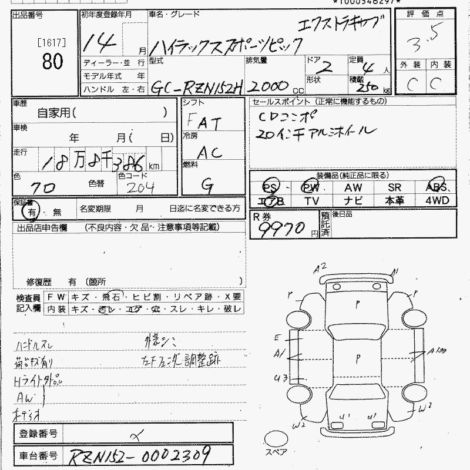 *1000346297*
出品番号
[1617]
80
初年度登録年月
14 月
車名・グレード
エクストラキャブ
ハイラックススポーツピック
評価点
3.5
外 C 内 C
ディーラー・並行
モデル年式 年
ハンドル 左・右
型式
GC-RZN152H
排気量
2000 CC
ドア 形状
2
定員
4 人
積載
250 kg
車歴
自家用( )
車検
年 月( )
走行
18万8千386 km
色
70
色替
色コード
204
シフト
FAT
冷房
AC
燃料
G
セールスポイント(正常に機能するもの)
CDコンポ
20インチアルミホイル
装備品(純正品に限る)
PS PW AW SR ABS
エアB TV ナビ 本革 4WD
保証書
有・無
名変期限 月 日迄に名変できる方
R券
9970 円
預託済
後日品
出品店申告欄 (不良内容・欠品・注意事項等記載)
修復歴 有 (箇所 )
検査員記入欄
FW キズ・飛石・ヒビ割・リペア跡・X要
内装 キズ・汚レ・コゲ・穴・スレ・キレ・破レ
ハンドルスレ
AW
調整跡
登録番号
車台番号
RZN152-0002309
A2 N
P P P
E
A1 P
U3
W2 U1 U1 W3
スペア